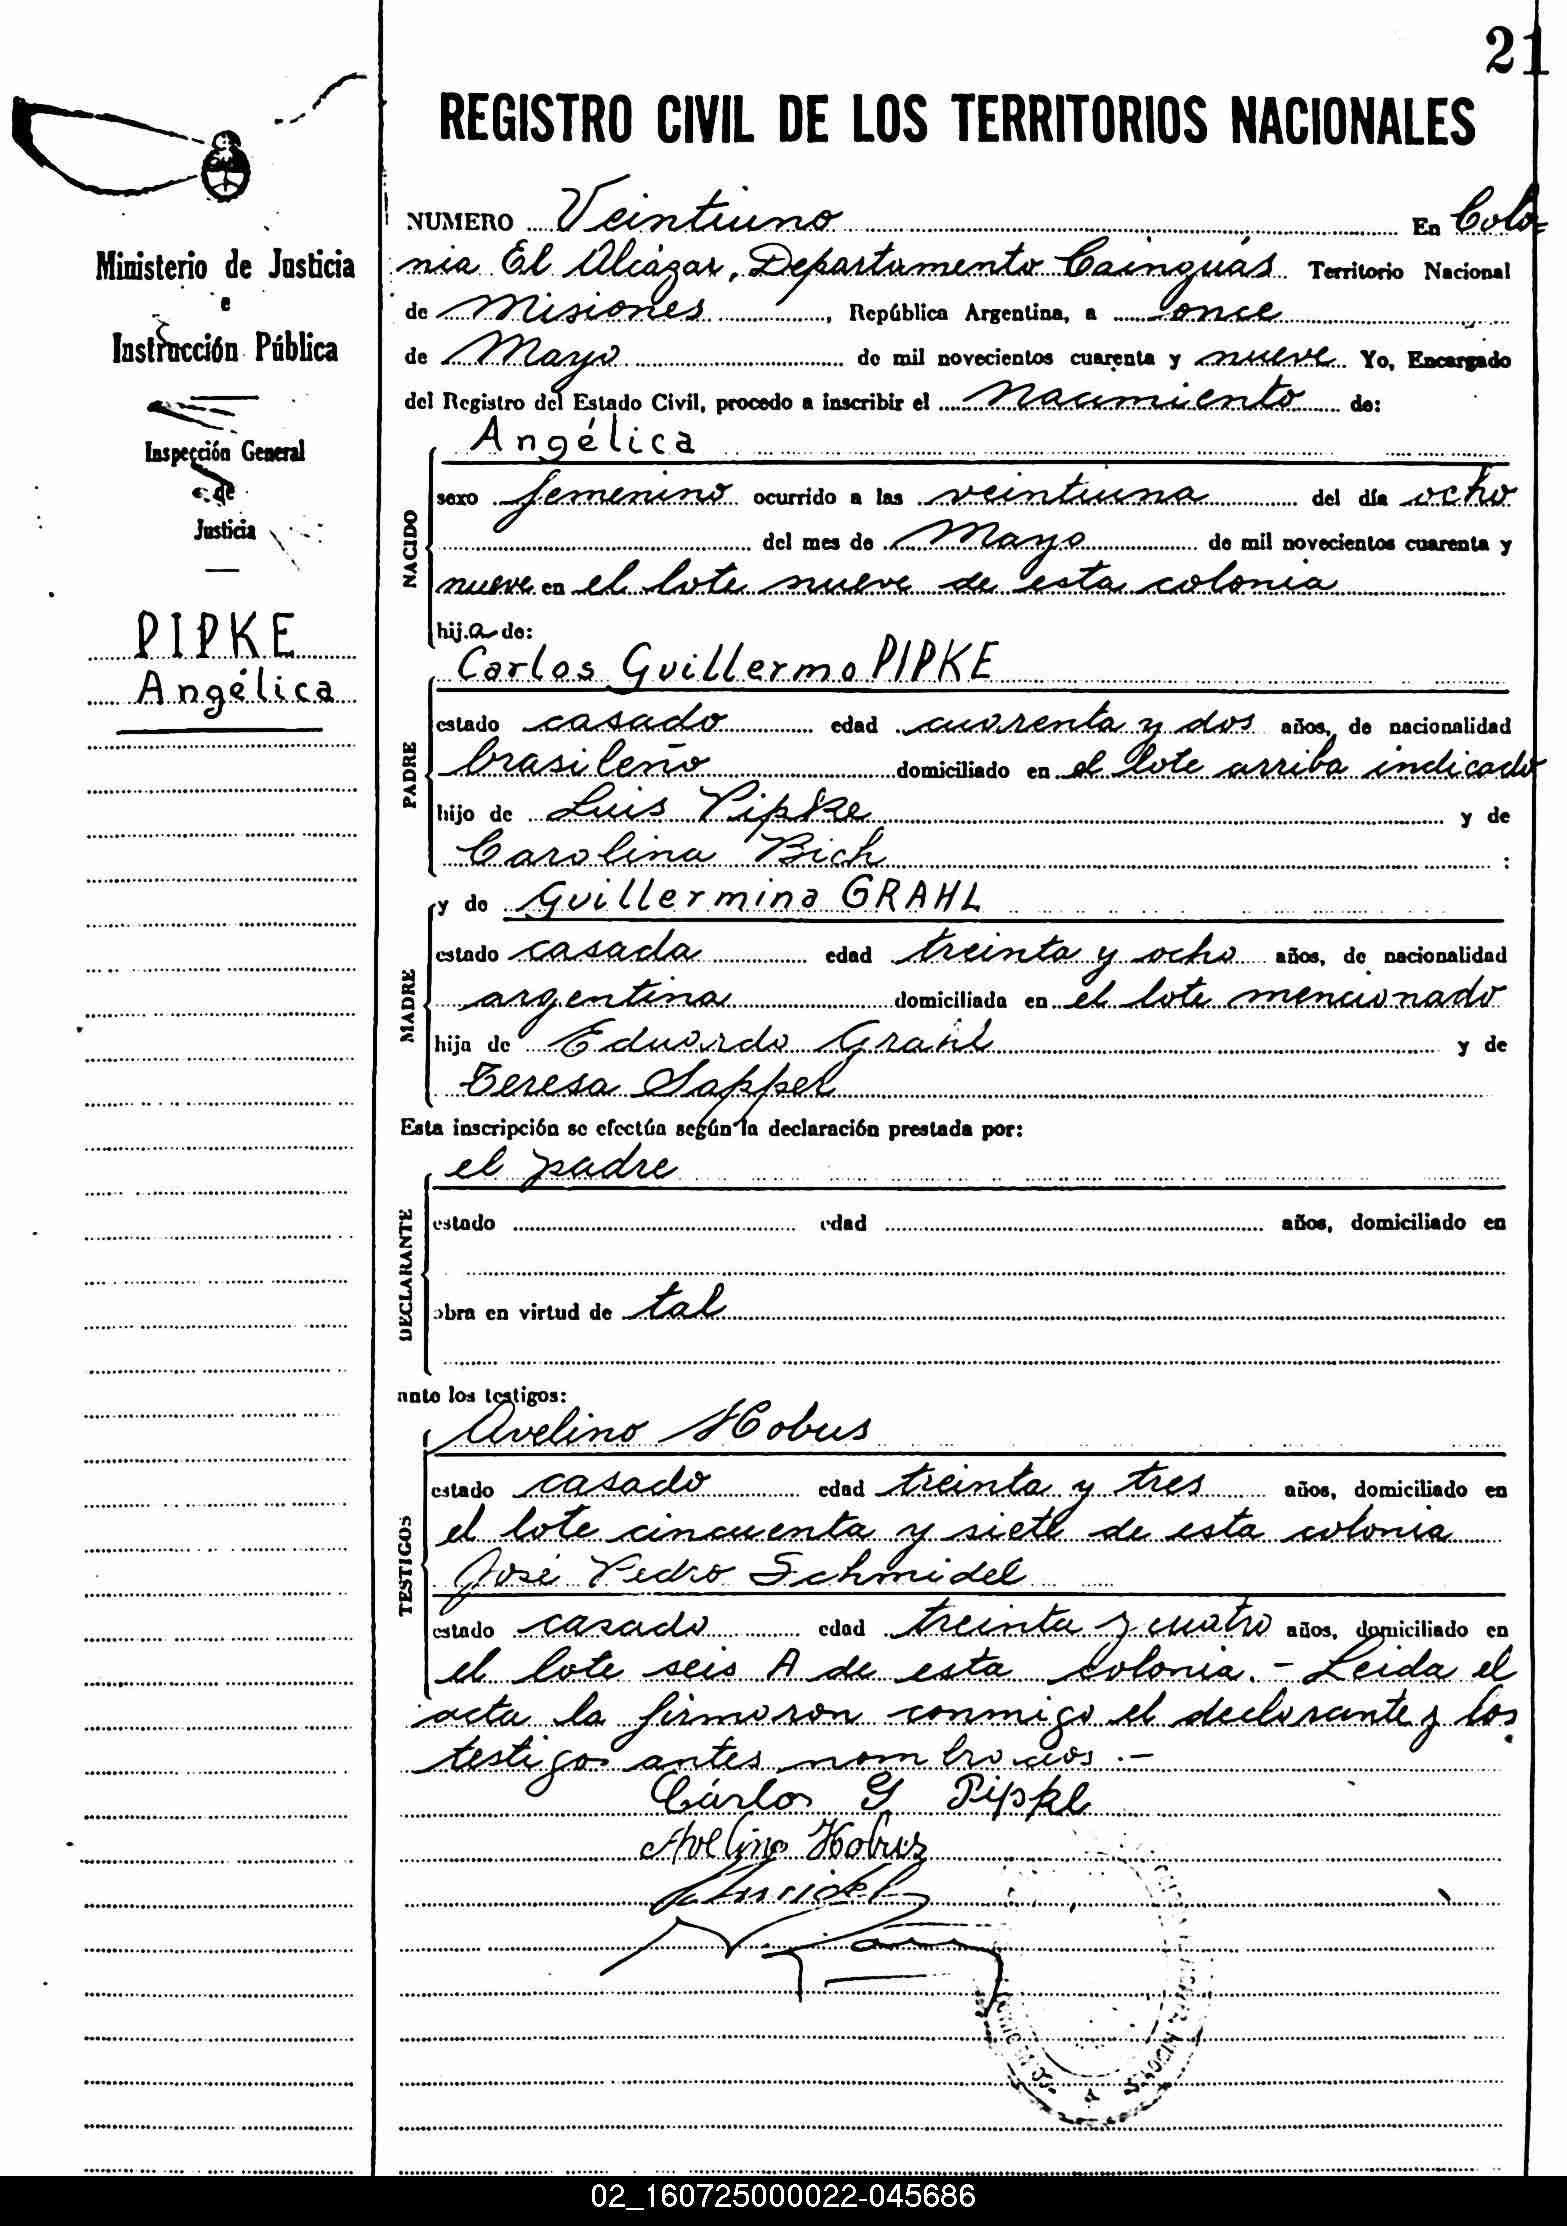 21
REGISTRO CIVIL DE LOS TERRITORIOS NACIONALES
Ministerio de Justicia
e
Instrucción Pública
Inspección General
de
Justicia
PIPKE
Angélica
NUMERO Veintiuno En Colo=
nia El Alcázar, Departamento Cainguás Territorio Nacional
de Misiones, República Argentina, a once
de Mayo de mil novecientos cuarenta y nueve Yo, Encargado
del Registro del Estado Civil, procedo a inscribir el nacimiento de:
Angélica
NACIDO
sexo femenino ocurrido a las veintiuna del día ocho
del mes de Mayo de mil novecientos cuarenta y
nueve en el lote nueve de esta colonia
hij.a de:
Carlos Guillermo PIPKE
PADRE
estado casado edad cuarenta y dos años, de nacionalidad
brasileño domiciliado en el lote arriba indicado
hijo de Luis Pipke y de
Carolina Bich :
y de Guillermina GRAHL
MADRE
estado casada edad treinta y ocho años, de nacionalidad
argentina domiciliada en el lote mencionado
hija de Eduardo Grahl y de
Teresa Sappel
Esta inscripción se efectúa según la declaración prestada por:
el padre
DECLARANTE
estado edad años, domiciliado en
obra en virtud de tal
ante los testigos:
Avelino Hobus
TESTIGOS
estado casado edad treinta y tres años, domiciliado en
el lote cincuenta y siete de esta colonia
José Pedro Schmidel
estado casado edad treinta y cuatro años, domiciliado en
el lote seis A de esta colonia.- Leida el
acta la firmaron conmigo el declarante y los
testigos antes nombrados.-
Cárlos G Pipke
Avelino Hobus
02_160725000022-045686